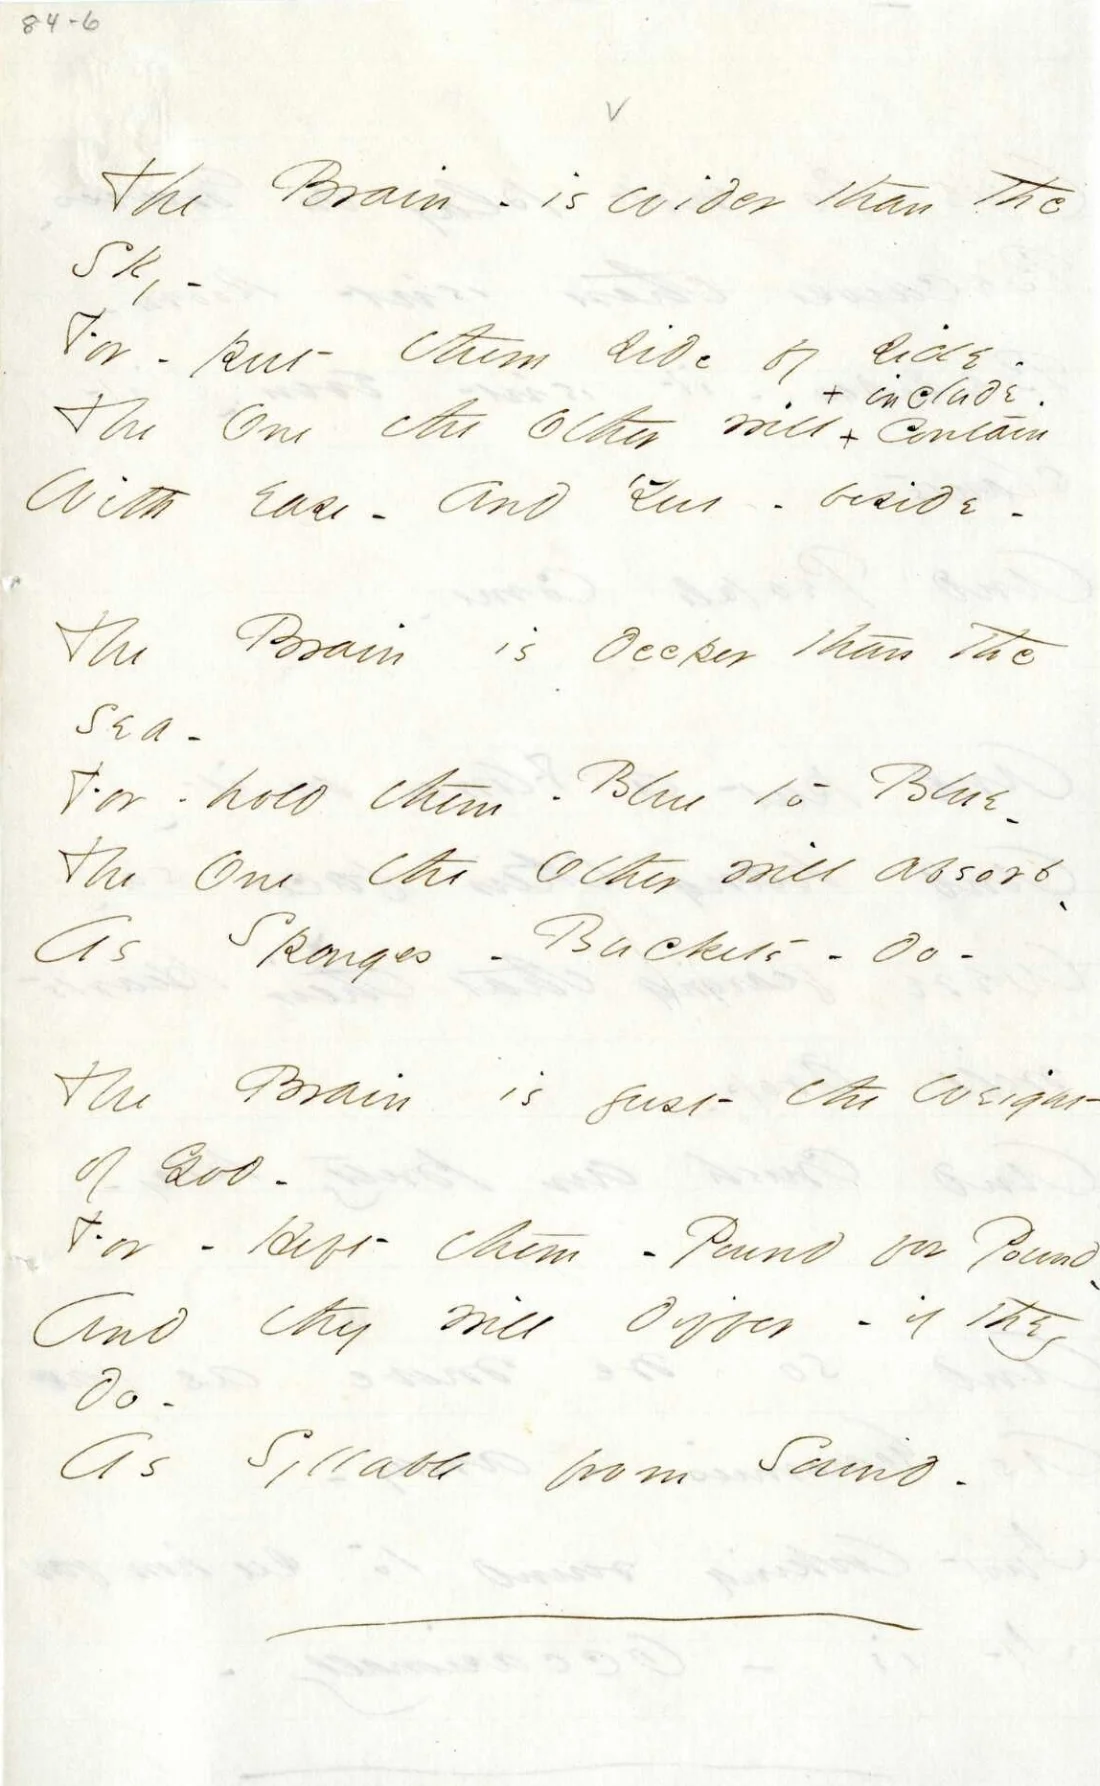 84-6
The Brain - is wider than the
Sky -
For - put them side by side -
+ include -
The One the Other will + Contain
With ease - and You - beside -
The Brain is deeper than the
sea -
For - hold them - Blue to Blue -
The One the Other will absorb -
As Sponges - Buckets - do -
The Brain is just the weight
of God -
For - Heft them - Pound for Pound -
And they will differ - if they
do -
As Syllable from Sound -